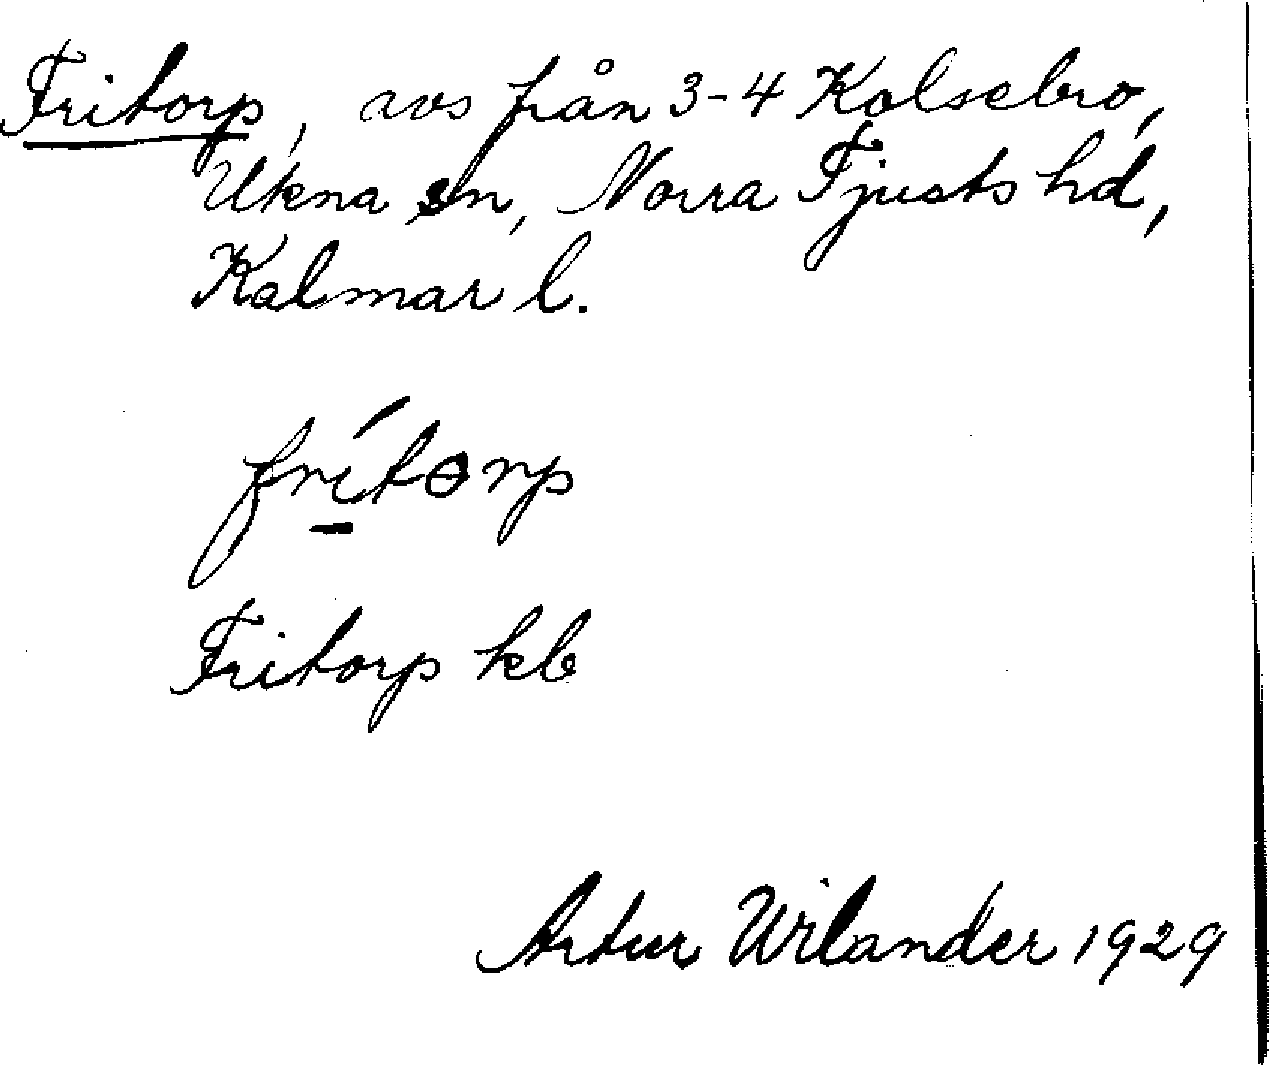 Fritorp, avs från 3-4 Kolsebro,
Ukna sn, Norra Tjusts hd,
Kalmar l.
frí̱tɵrp
Fritorp kb
Artur Wilander 1929